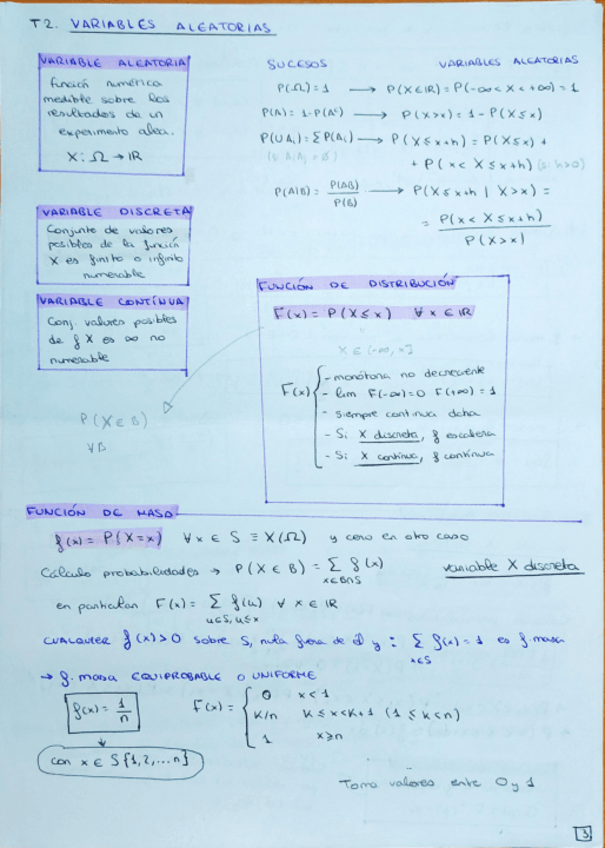 T2. VARIABLES ALEATORIAS
VARIABLE ALEATORIA
función numérica
medible sobre los
resultados de un
experimento alea.
X: Ω → IR
SUCESOS
VARIABLES ALEATORIAS
P(Ω) = 1 → P(X∈IR) = P(-∞ < X < +∞) = 1
P(A) = 1-P(Aᶜ) → P(X>x) = 1 - P(X≤x)
P(∪Aᵢ) = ΣP(Aᵢ) → P(X≤x+h) = P(X≤x) +
(si AᵢAⱼ = ∅) + P(x< X ≤x+h) (si h>0)
P(A|B) = P(AB)/P(B) → P(X≤x+h | X>x) =
= P(x< X≤x+h)/P(X>x)
VARIABLE DISCRETA
Conjunto de valores
posibles de la función
X es finito o infinito
numerable
VARIABLE CONTÍNUA
Conj. valores posibles
de f X es ∞ no
numerable
FUNCIÓN DE DISTRIBUCIÓN
F(x) = P(X≤x) ∀ x ∈ IR
X ∈ (-∞, x]
F(x) { - monótona no decreciente
- lim F(-∞)=0 F(+∞) = 1
- siempre continua dcha
- Si X discreta, f escalera
- Si X contínua, f contínua
P(X∈B)
∀B
FUNCIÓN DE MASA
f(x) = P(X=x) ∀x ∈ S ≡ X(Ω) y cero en otro caso
Cálculo probabilidades → P(X∈B) = Σ f(x)
x∈B∩S
variable X discreta
en particular F(x) = Σ f(u) ∀ x ∈ IR
u∈S, u≤x
CUALQUIER f(x)>0 sobre S, nula fuera de él y : Σ f(x) = 1 es f.masa
x∈S
→ f. masa EQUIPROBABLE o UNIFORME
f(x) = 1/n
F(x) = { 0 x<1
k/n k ≤ x<k+1 (1 ≤ k<n)
1 x≥n
con x ∈ S{1,2,...n}
Toma valores entre 0 y 1
3